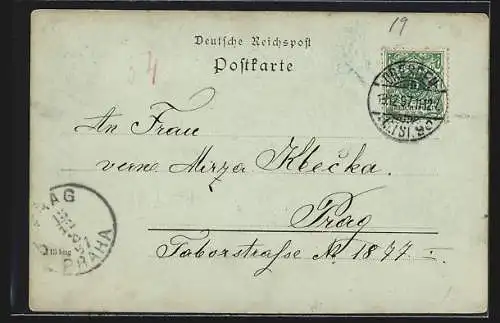 19
54
Deutsche Reichspost
Postkarte
DRESDEN
An Frau
verne Mirza Klečka.
Prag
Taborstraße No 1877.
PRAG
PRAHA